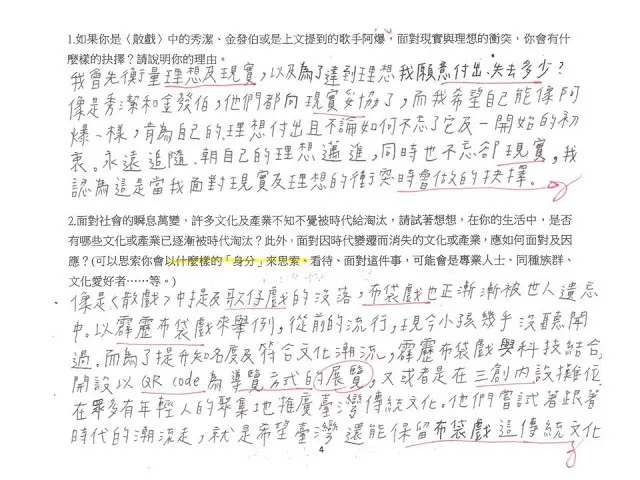 1.如果你是〈散戲〉中的秀潔、金發伯或是上文提到的歌手阿爆，面對現實與理想的衝突，你會有什
麼樣的抉擇？請說明你的理由。
我會先衡量理想及現實，以及為了達到理想我願意付出、失去多少？
像是秀潔和金發伯，他們都向現實妥協了，而我希望自己能像阿
爆一樣，肯為自己的理想付出且不論如何不忘了它及一開始的初
衷。永遠追隨、朝自己的理想邁進，同時也不忘卻現實。我
認為這是當我面對現實及理想的衝突時會做的抉擇。
2.面對社會的瞬息萬變，許多文化及產業不知不覺被時代給淘汰，請試著想想，在你的生活中，是否
有哪些文化或產業已逐漸被時代淘汰？此外，面對因時代變遷而消失的文化或產業，應如何面對及因
應？(可以思索你會以什麼樣的「身分」來思索、看待、面對這件事，可能會是專業人士、同種族群、
文化愛好者……等。)
像是〈散戲〉中提及歌仔戲的沒落，布袋戲也正漸漸被世人遺忘
中。以霹靂布袋戲來舉例，從前的流行，現今小孩幾乎沒聽聞
過。而為了提升知名度及符合文化潮流，霹靂布袋戲與科技結合，
開設以QR code為導覽方式的展覽，又或者是在三創內設攤位
在眾多有年輕人的聚集地推廣臺灣傳統文化。他們嘗試著跟著
時代的潮流走，就是希望臺灣還能保留布袋戲這傳統文化
4